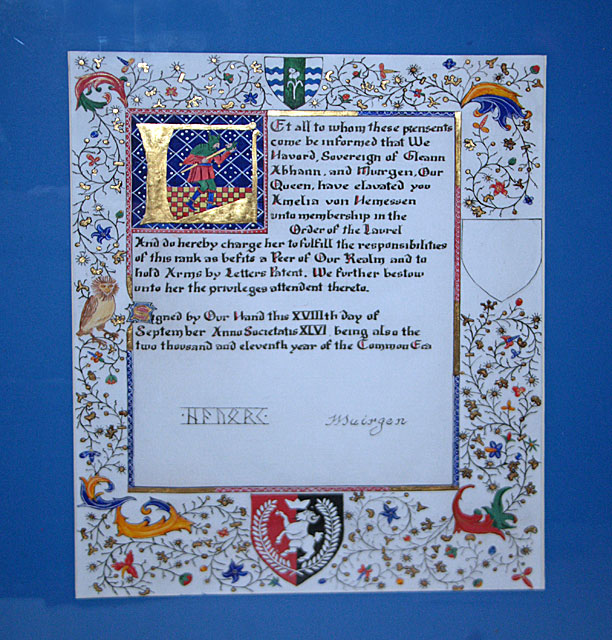 Let all to whom these presents
come be informed that We
Havord, Sovereign of Gleann
Abhann, and Murgen, Our
Queen, have elavated you
Amelia von Hemessen
unto membership in the
Order of the Laurel
And do hereby charge her to fulfill the responsibilities
of this rank as befits a Peer of Our Realm and to
hold Arms by Letters Patent. We further bestow
unto her the privileges attendent thereto.
Signed by Our Hand this XVIIIth day of
September Anno Societatis XLVI being also the
two thousand and eleventh year of the Common Era
Muirgen